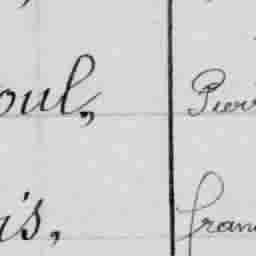 oul, Pierr
is, franç